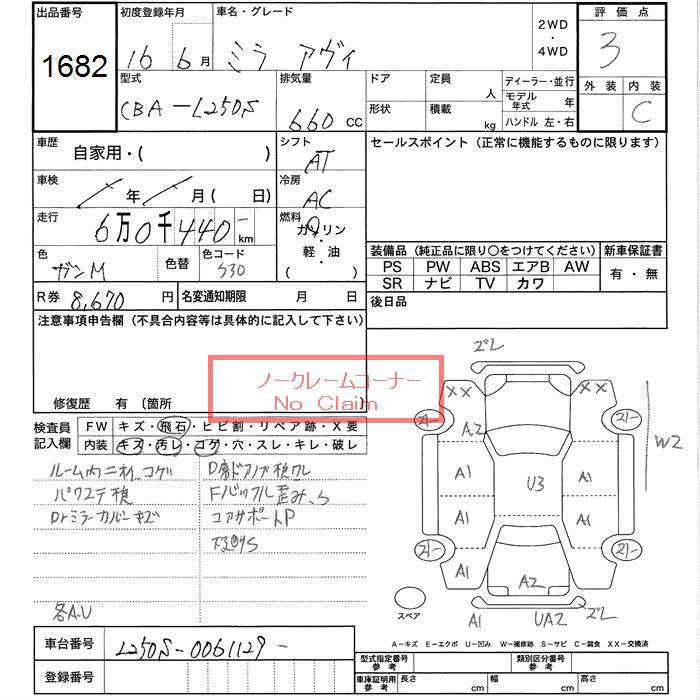 出品番号 初度登録年月 車名・グレード 評価点
1682 16 6月 ミラ アヴィ 2WD・4WD 3
型式 排気量 ドア 定員 人 ディーラー・並行 外装 内装
CBA-L250S 660 CC 形状 積載 kg モデル年式 年 C
ハンドル 左・右
車歴 自家用・( ) シフト AT セールスポイント (正常に機能するものに限ります)
車検 / 年 / 月 ( 日) 冷房 AC
走行 6万0千440 km 燃料 ガソリン・軽・油 ( )
色 ガンM 色替 色コード S30
装備品 (純正品に限り○をつけてください) 新車保証書
PS PW ABS エアB AW 有・無
SR ナビ TV カワ
R券 8,670円 名変通知期限 月 日 後日品
注意事項申告欄 (不具合内容等は具体的に記入して下さい)
ノークレームコーナー
No Claim
修復歴 有 〔箇所
検査員記入欄 FW キズ・飛石・ヒビ割・リペア跡・X要
内装 キズ・汚レ・コゲ・穴・スレ・キレ・破レ
コアサポートP
各A.U
ズレ
XX XX
A2
W2
A1 U3 A1
A1 A1
A1 A2
A1 UA2 ズレ
スペア
A-キズ E-エクボ U-凹み W-補修跡 S-サビ C-腐食 XX-交換済
車台番号 L250S-0061129-
登録番号
型式指定番号 参考 類別区分番号 参考
車庫証明用 参考 長さ cm 幅 cm 高さ cm